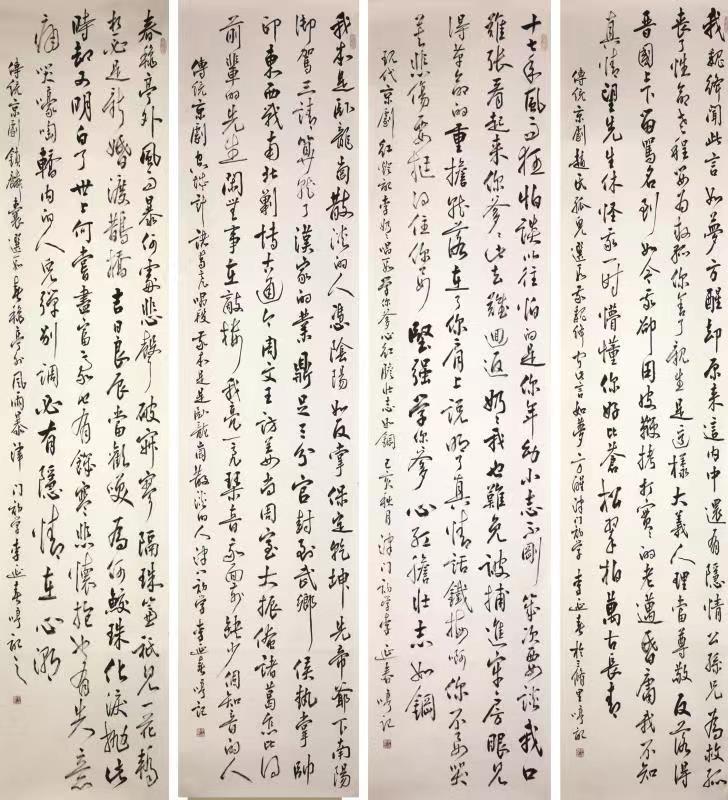 我魏绛聞此言如夢方醒却原来這内中還有隱情公孫兄為救孤
丧了性命老程嬰為救孤你舍了親生是這樣大義人理當尊敬反落得
晋國上下留罵名到如今我卻用皮鞭拷打實實的老邁昏庸我不知
真情望先生休怪我一時懵懂你好比蒼松翠柏萬古長青
傳統京劇趙氏孤兒選段我魏绛聞此言如夢方醒津門初学李延春於
十七年風雨狂怕談以往怕的是你年幼小志不剛幾次要談我口
難張看起来你爹爹此去難迴返奶奶我也難免被捕進牢房眼見
得革命的重擔就落在了你肩上說明了真情話鐵梅啊你不要哭
莫悲傷要挺得住你要堅强学你爹心紅膽壮志如鋼
現代京劇紅燈記李奶奶唱段学你爹心紅膽壮志如鋼己亥秋月津門初学李延春
我本是臥龍崗散淡的人憑陰陽如反掌保定乾坤先帝爺下南陽
御駕三請算就了漢家的業鼎足三分官封到武鄉侯執掌帥
印東西戰南北剿博古通今周文王訪姜尚周室大振俺諸葛怎比得
前輩的先生閑無事在敲樓我亮一亮琴音我面前缺少個知音的人
傳統京劇空城計諸葛亮唱段我本是臥龍崗散淡的人津門初学李延春
春秋亭外風雨暴何處悲聲破寂寥隔珠簾祇見一花轎
想必是新婚渡鵲橋吉日良辰當歡笑為何鮫珠化淚拋此
時却又明白了世上何嘗盡富豪也有饑寒悲懷抱也有失意
痛哭嚎啕轎内的人兒彈别調必有隱情在心潮
傳統京劇鎖麟囊選段春秋亭外風雨暴津門初学李延春